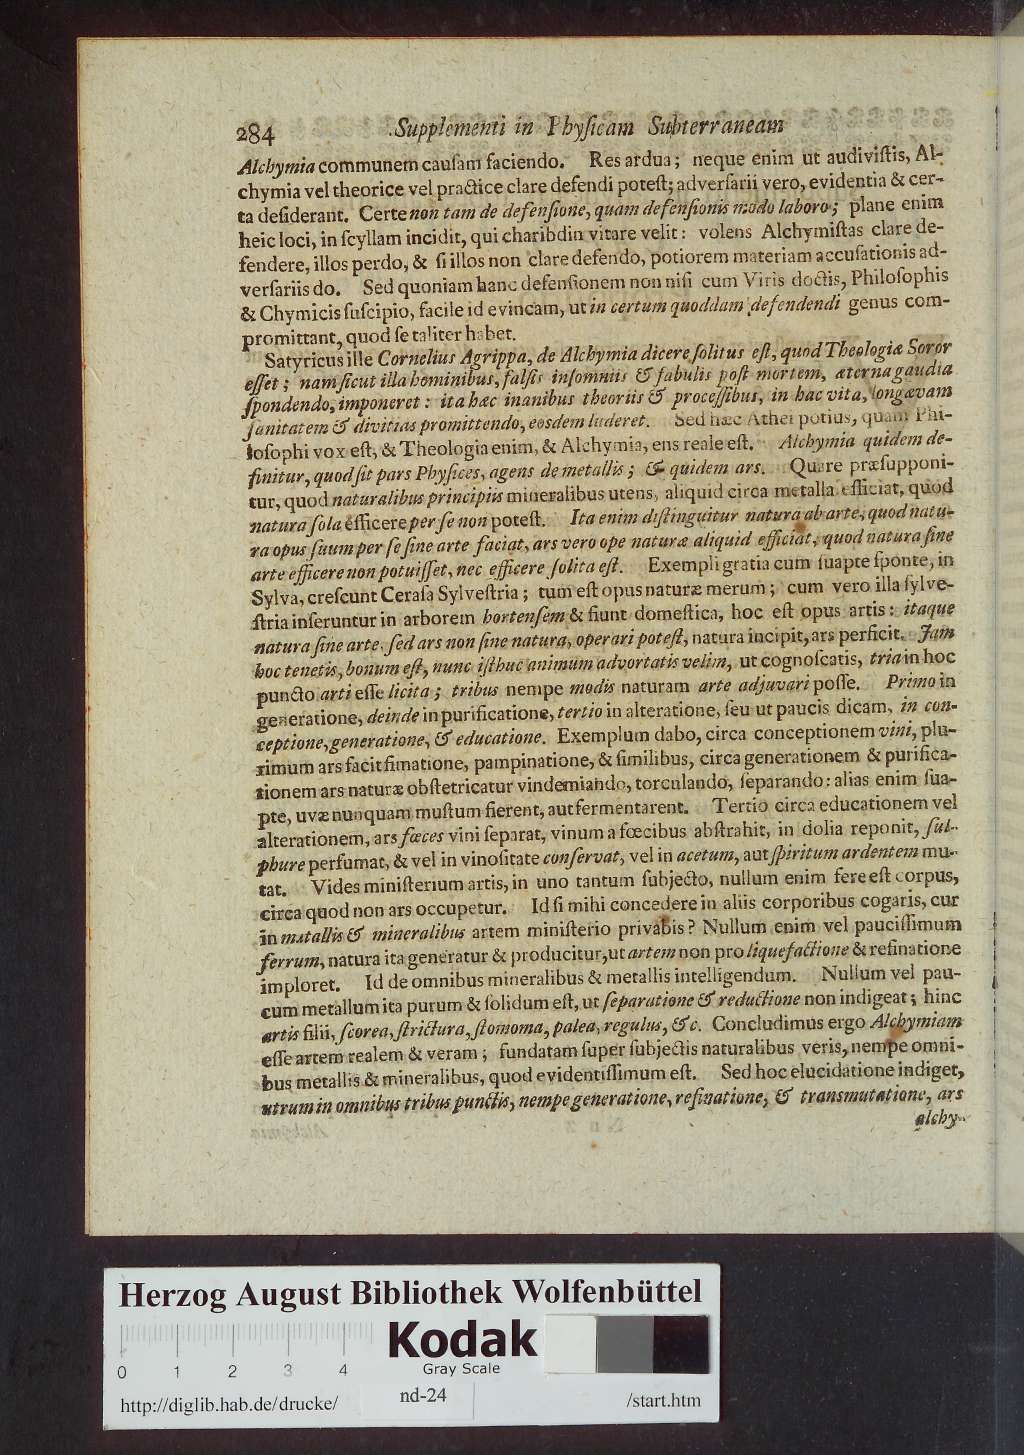 284 Supplementi in Phyſicam Subterraneam
Alchymia communem cauſam faciendo. Res ardua; neque enim ut audiviſtis, Al-
chymia vel theorice vel practice clare defendi poteſt; adverſarii vero, evidentia & cer-
ta deſiderant. Certe non tam de defenſione, quam defenſionis modo laboro; plane enim
heic loci, in ſcyllam incidit, qui charibdin vitare velit: volens Alchymiſtas clare de-
fendere, illos perdo, & ſi illos non clare defendo, potiorem materiam accuſationis ad-
verſariis do. Sed quoniam hanc defenſionem non niſi cum Viris doctis, Philoſophis
& Chymicis ſuſcipio, facile id evincam, ut in certum quoddam defendendi genus com-
promittant, quod ſe taliter habet.
Satyricus ille Cornelius Agrippa, de Alchymia dicere ſolitus eſt, quod Theologiæ Soror
eſſet; nam ſicut illa hominibus, falſis inſomniis & fabulis poſt mortem, æterna gaudia
ſpondendo, imponeret: ita hæc inanibus theoriis & proceſſibus, in hac vita, longævam
ſanitatem & divitias promittendo, eosdem luderet. Sed hæc Athei potius, quam Phi-
loſophi vox eſt, & Theologia enim, & Alchymia, ens reale eſt. Alchymia quidem de-
finitur, quod ſit pars Phyſices, agens de metallis; & quidem ars. Quare præſupponi-
tur, quod naturalibus principiis mineralibus utens, aliquid circa metalla efficiat, quod
natura ſola efficere per ſe non poteſt. Ita enim diſtinguitur natura ab arte, quod natu-
ra opus ſuum per ſe ſine arte faciat, ars vero ope naturæ aliquid efficiat, quod natura ſine
arte efficere non potuiſſet, nec efficere ſolita eſt. Exempli gratia cum ſuapte ſponte, in
Sylva, creſcunt Ceraſa Sylveſtria; tum eſt opus naturæ merum; cum vero illa ſylve-
ſtria inſeruntur in arborem hortenſem & fiunt domeſtica, hoc eſt opus artis: itaque
natura ſine arte, ſed ars non ſine natura, operari poteſt, natura incipit, ars perficit. Jam
hoc tenetis, bonum eſt, nunc iſthuc animum advortatis velim, ut cognoſcatis, tria in hoc
puncto arti eſſe licita; tribus nempe modis naturam arte adjuvari poſſe. Primo in
generatione, deinde in purificatione, tertio in alteratione, ſeu ut paucis dicam, in con-
ceptione, generatione, & educatione. Exemplum dabo, circa conceptionem vini, plu-
rimum ars facit fimatione, pampinatione, & ſimilibus, circa generationem & purifica-
tionem ars naturæ obſtetricatur vindemiando, torculando, ſeparando: alias enim ſua-
pte, uvæ nunquam muſtum fierent, aut fermentarent. Tertio circa educationem vel
alterationem, ars fœces vini ſeparat, vinum a fœcibus abſtrahit, in dolia reponit, ſul-
phure perfumat, & vel in vinoſitate conſervat, vel in acetum, aut ſpiritum ardentem mu-
tat. Vides miniſterium artis, in uno tantum ſubjecto, nullum enim fere eſt corpus,
circa quod non ars occupetur. Id ſi mihi concedere in aliis corporibus cogaris, cur
in matallis & mineralibus artem miniſterio privabis? Nullum enim vel pauciſſimum
ferrum, natura ita generatur & producitur, ut artem non pro liquefactione & refinatione
imploret. Id de omnibus mineralibus & metallis intelligendum. Nullum vel pau-
cum metallum ita purum & ſolidum eſt, ut ſeparatione & reductione non indigeat; hinc
artis filii, ſcorea, ſtrictura, ſtomoma, palea, regulus, &c. Concludimus ergo Alchymiam
eſſe artem realem & veram; fundatam ſuper ſubjectis naturalibus veris, nempe omni-
bus metallis & mineralibus, quod evidentiſſimum eſt. Sed hoc elucidatione indiget,
utrum in omnibus tribus punctis, nempe generatione, refinatione, & transmutatione, ars
alchy-
Herzog August Bibliothek Wolfenbüttel
Kodak
Gray Scale
0 1 2 3 4
http://diglib.hab.de/drucke/ nd-24 /start.htm